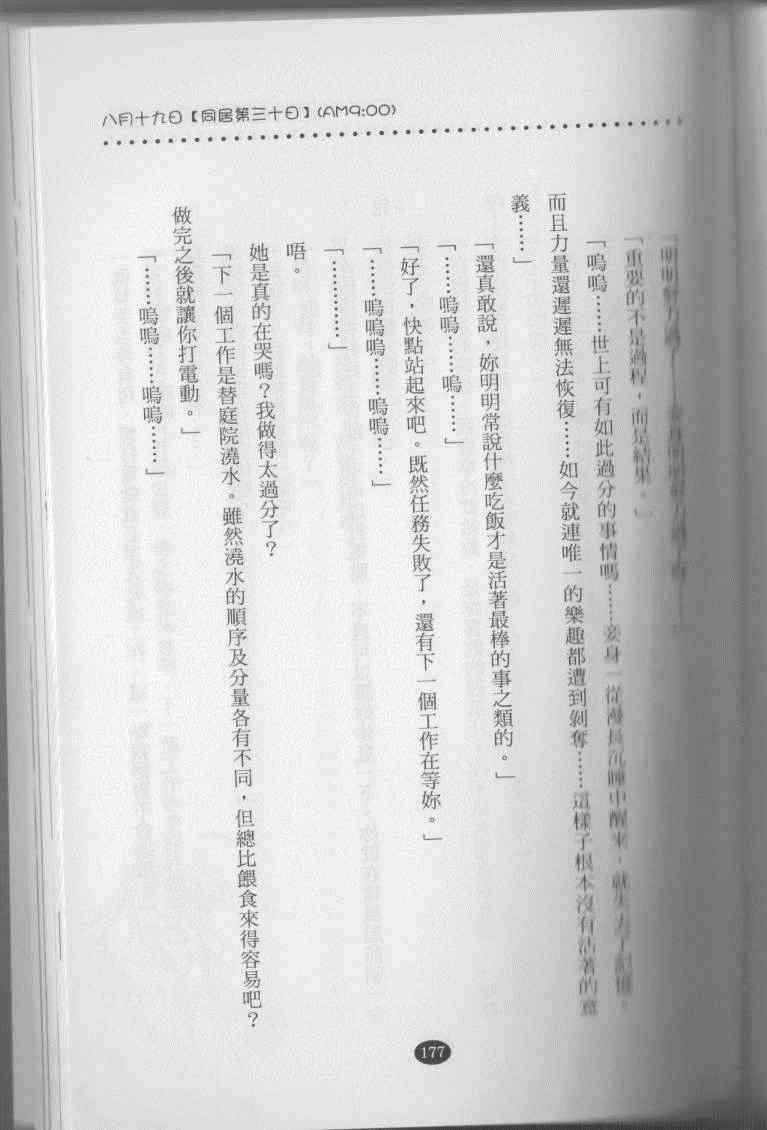 八月十九日【同居第三十日】(AM9:00)
「明明
「重要的不是過程，而是結果。」
「嗚嗚……世上可有如此過分的事情嗎……妾身一從漫長沉睡中醒來，就失去了記憶。
而且力量還遲遲無法恢復……如今就連唯一的樂趣都遭到剝奪……這樣子根本沒有活著的意
義……」
「還真敢說，妳明明常說什麼吃飯才是活著最棒的事之類的。」
「……嗚嗚……嗚……」
「好了，快點站起來吧。既然任務失敗了，還有下一個工作在等妳。」
「……嗚嗚嗚……嗚嗚……」
「…………」
唔。
她是真的在哭嗎？我做得太過分了？
「下一個工作是替庭院澆水。雖然澆水的順序及分量各有不同，但總比餵食來得容易吧？
做完之後就讓你打電動。」
「……嗚嗚……嗚嗚……」
177